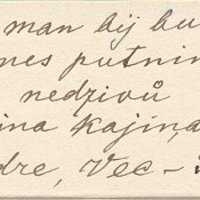 man bij bu
nes putnin
nedzivū
ina Kajina,
dre, Vec-